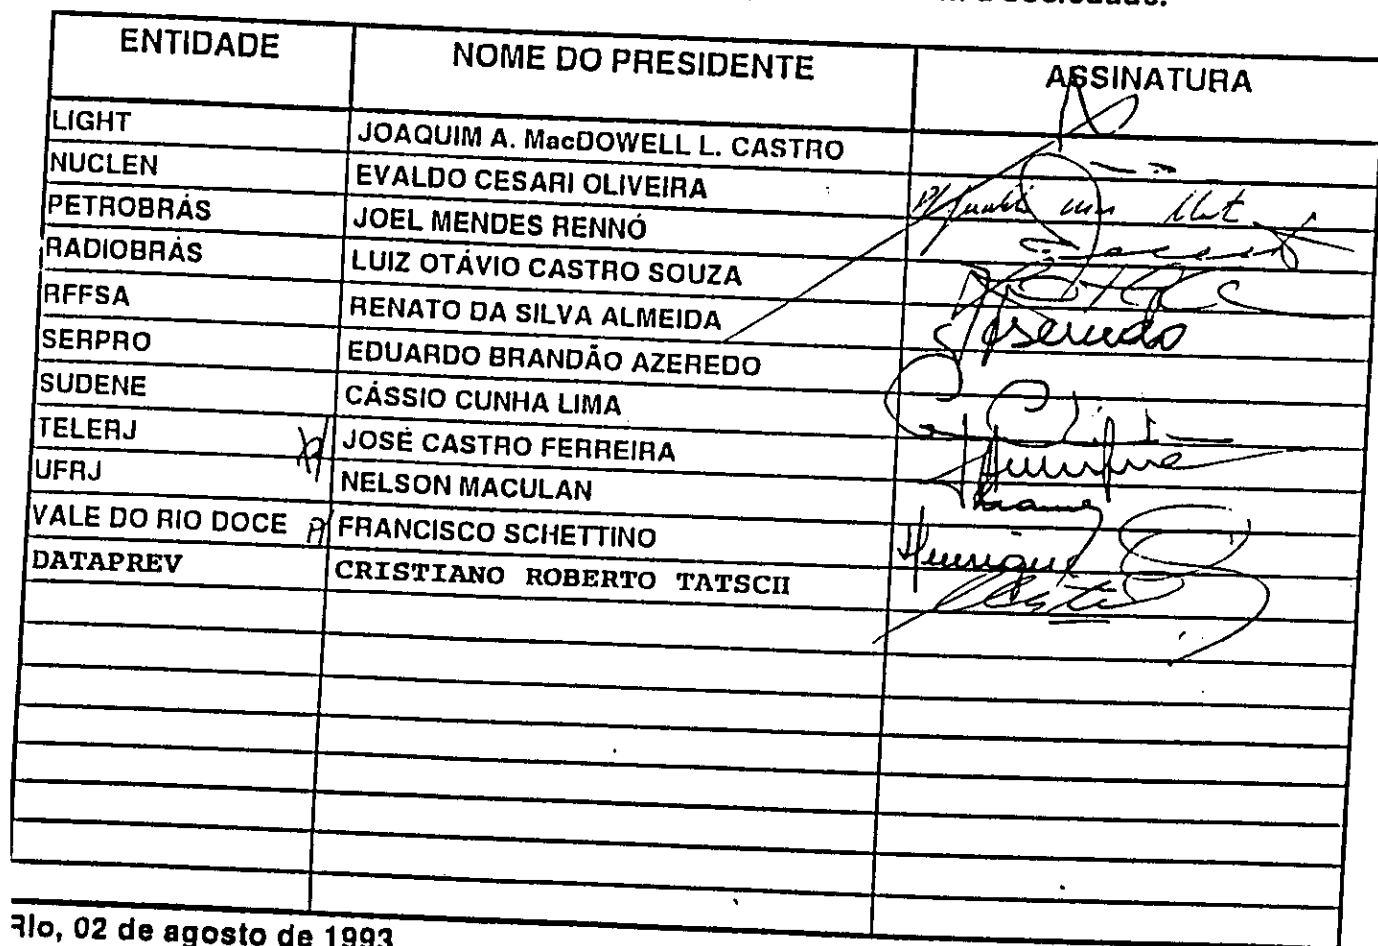 sociedade.
ENTIDADE NOME DO PRESIDENTE ASSINATURA
LIGHT JOAQUIM A. MacDOWELL L. CASTRO
NUCLEN EVALDO CESARI OLIVEIRA
PETROBRÁS JOEL MENDES RENNÓ
RADIOBRÁS LUIZ OTÁVIO CASTRO SOUZA
RFFSA RENATO DA SILVA ALMEIDA
SERPRO EDUARDO BRANDÃO AZEREDO
SUDENE CÁSSIO CUNHA LIMA
TELERJ P/ JOSÉ CASTRO FERREIRA
UFRJ NELSON MACULAN
VALE DO RIO DOCE P/ FRANCISCO SCHETTINO Henrique
DATAPREV CRISTIANO ROBERTO TATSCH
Rio, 02 de agosto de 1993